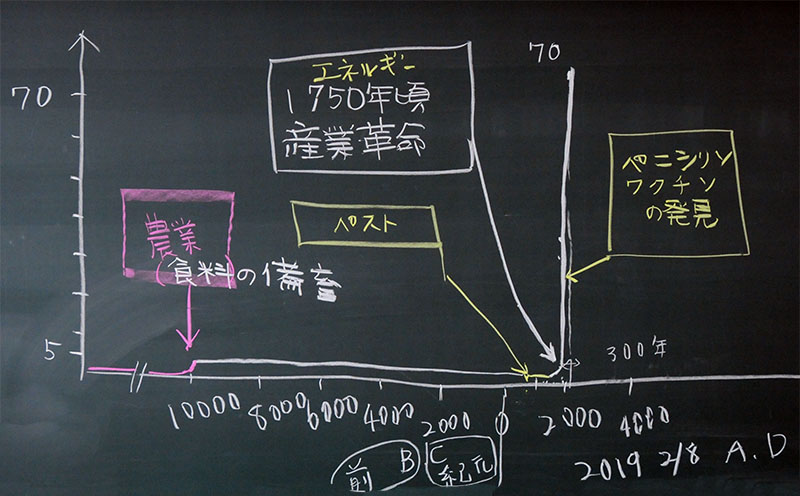 70
エネルギー
1750年頃
産業革命
70
ペニシリン
ワクチン
の発見
農業
食料の備畜
ペスト
5
300年
10000 8000 6000 4000 2000 0 2000 4000
前 B C 紀元
2019 2/8 A.D